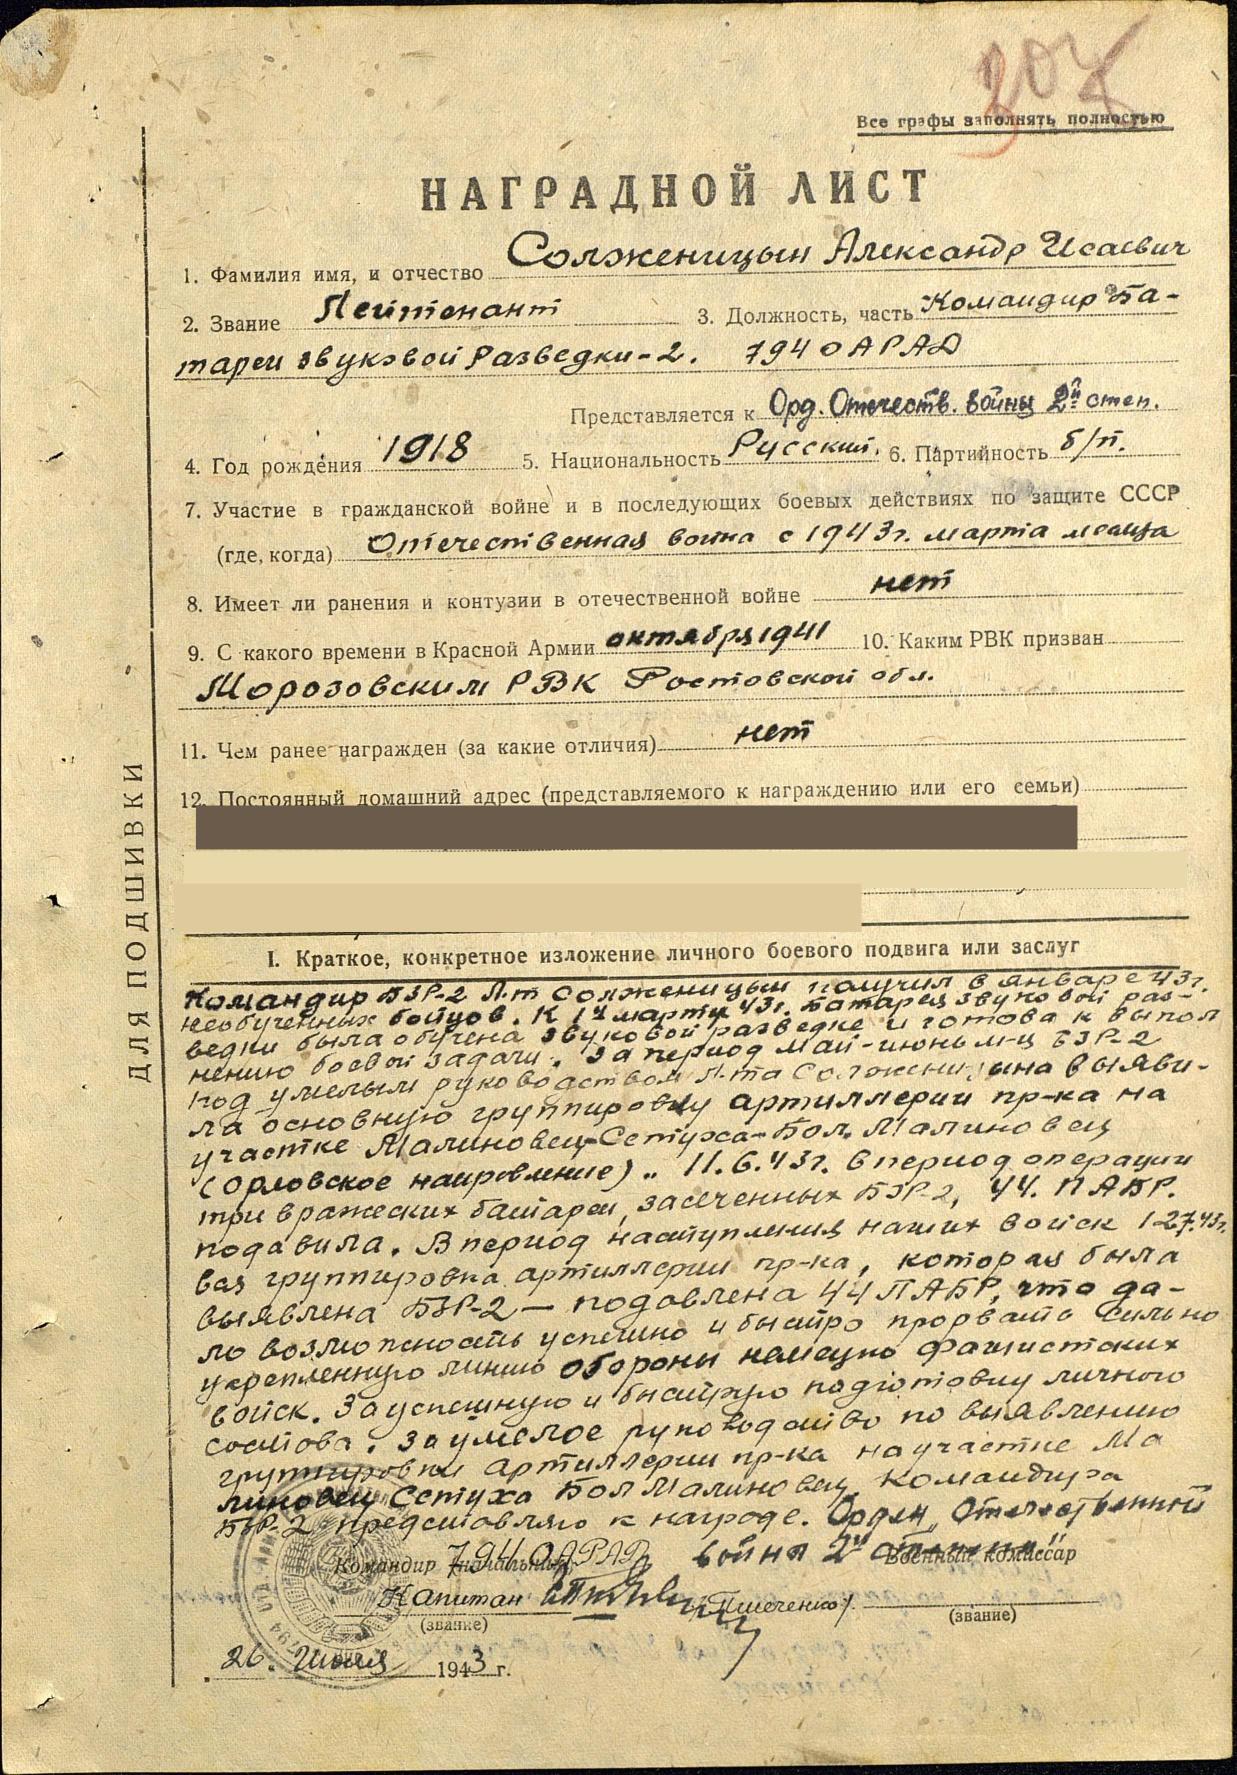 Все графы заполнять полностью
НАГРАДНОЙ ЛИСТ
1. Фамилия имя, и отчество Солженицын Александр Исаевич
2. Звание Лейтенант 3. Должность, часть Командир Ба-
тареи звуковой разведки-2. 794 ОАРАД
Представляется к Орд. Отечеств. войны 2й степ.
4. Год рождения 1918 5. Национальность Русский. 6. Партийность б/п.
7. Участие в гражданской войне и в последующих боевых действиях по защите СССР
(где, когда) Отечественная война с 1943г. марта месяца
8. Имеет ли ранения и контузии в отечественной войне нет
9. С какого времени в Красной Армии октября 1941 10. Каким РВК призван
Морозовским РВК Ростовской обл.
11. Чем ранее награжден (за какие отличия) нет
12. Постоянный домашний адрес (представляемого к награждению или его семьи)
ДЛЯ ПОДШИВКИ
I. Краткое, конкретное изложение личного боевого подвига или заслуг
Командир БЗР-2 Л-т Солженицын получил в январе 43г.
необученных бойцов. К 14 марту 43г. батарея звуковой раз-
ведки была обучена звуковой разведке и готова к выпол
нению боевой задачи. За период май-июнь м-ц БЗР-2
под умелым руководством Л-та Солженицына выяви-
ла основную группировку артиллерии пр-ка на
участке Малиновец-Сетуха-Бол. Малиновец
(орловское направление).. 11.6.43г. в период операции
три вражеских батареи, засеченных БЗР-2, 44. ПАБР.
подавила. В период наступления наших войск 12.7.43г.
вся группировка артиллерии пр-ка, которая была
выявлена БЗР-2 — подавлена 44 ПАБР, что да-
ло возможность успешно и быстро прорвать сильно
укрепленную линию обороны немецко фашистских
войск. За успешную и быструю подготовку личного
состава. За умелое руководство по выявлению
группировки артиллерии пр-ка на участке Ма
линовец Сетуха Бол Малиновец, командира
БЗР-2 представляю к награде. Орден, Отечественной
войны 2й степени"
Командир 794 ОАРАД Военный комиссар
Капитан /Пшеченко/
(звание) (звание)
26. Июля 1943 г.